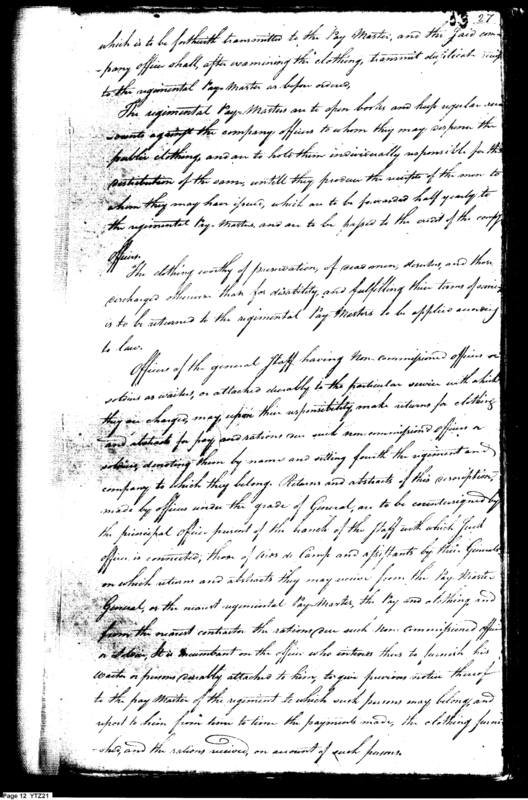 53 27
which is to be forthwith transmitted to the Pay Master, and the said com-
-pany officer shall, after examining the clothing, transmit duplicate receipts
to the regimental Pay Master as before ordered,
The regimental Pay-Masters are to open books and keep regular ac-
-counts against the company officers to whom they may dispense the
public clothing, and are to hold them individually responsible for the
distribution of the same, untill they produce the receipts of the men to
whom they may have issued, which are to be forwarded half yearly to
the regimental Pay-Master, and are to be passed to the credit of the compy
officers.
The clothing worthy of preservation, of dead men, deserters, and those
discharged otherwise than for disability, and fulfilling their terms of service
is to be returned to the regimental Pay Masters to be applied according
to law.
Officers of the general Staff having Non-commissioned officers or
soldiers as waiters, or attached durably to the particular service with which
they are charged, may upon their responsibility, make returns for clothing
and abstracts for pay and rations due such non commissioned officers or
soldiers, denoting them by name and setting fourth the regiment and
company to which they belong. Returns and abstracts of this description,
made by officers under the grade of General, are to be countersigned by
the principal officer present of the branch of the staff with which such
officer is connected, those of Aids de Camp and assistants by their Generals
on which returns and abstracts they may receive from the Pay Master
General, or the nearest regimental Pay-Master, the Pay and clothing, and
from the nearest contractor the rations due such Non commissioned officer
or soldier, It is incumbent on the officer who intends thus to furnish his
waiter or persons durably attached to him, to give previous notice thereof
to the pay Master of the regiment to which such persons may belong, and
report to him from time to time the payments made, the clothing furni-
-shed, and the rations received, on account of such persons.
Page 12 YTZ21